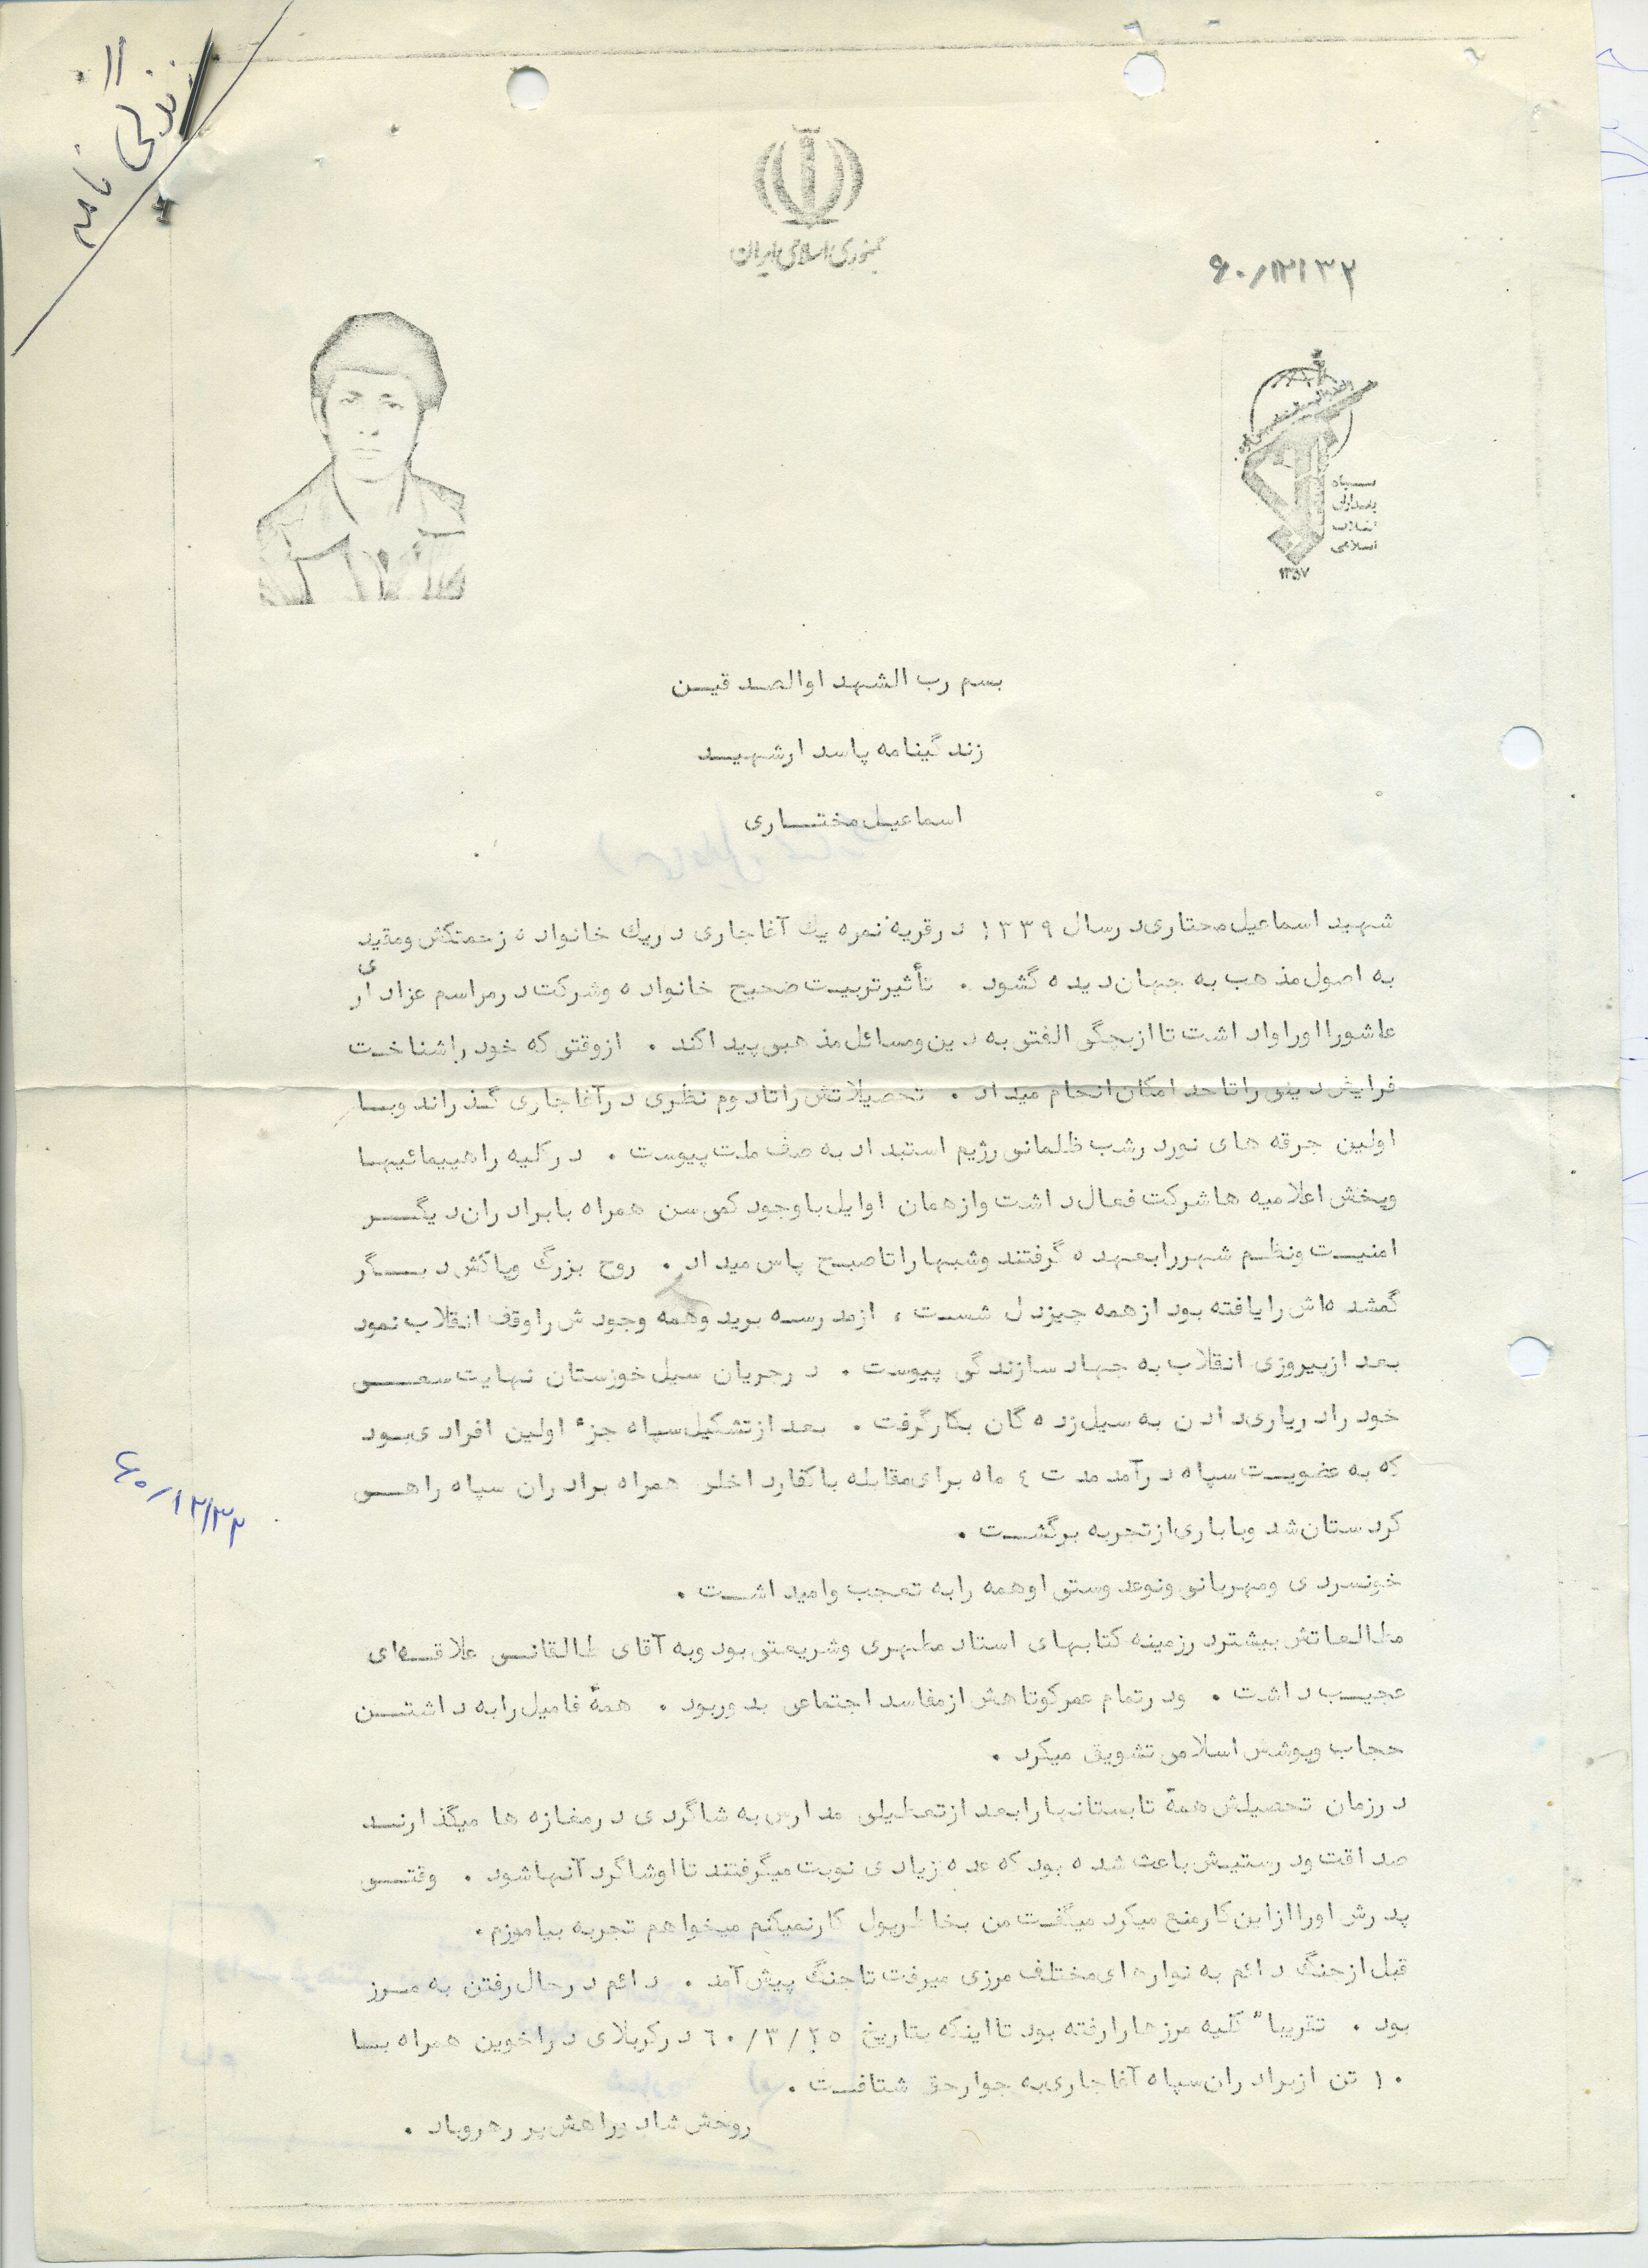 زندگی نامه
جمهوری اسلامی ایران
۶۰/۱۲۱۳۲
سپاه
پاسداران
انقلاب
اسلامی
۱۳۵۷
بسم رب الشهدا والصدقین
زندگینامه پاسدار شهید
اسماعیل مختاری
شهید اسماعیل مختاری در سال ۱۳۳۹ در قریه نمره یك آغاجاری در یك خانواده زحمتکش ومقید
به اصول مذهب به جهان دیده گشود . تأثیر تربیت ضحیح خانواده وشرکت در مراسم عزاداری
عاشورا اورا واداشت تا از بچگی الفتی به دین ومسائل مذهبی پیدا کند . از وقتی که خود را شناخت
فرایض دینی را تا حد امکان انجام میداد . تحصیلاتش را تا دوم نظری در آغاجاری گذراند وبا
اولین جرقه های نور در شب ظلمانی رژیم استبداد به صف ملت پیوست . در کلیه راهپیمائیها
وپخش اعلامیه ها شرکت فعال داشت واز همان اوایل با وجود کمی سن همراه با برادران دیگر
امنیت ونظم شهر را بعهده گرفتند وشبها را تا صبح پاس میداد . روح بزرگ وپاکش دیگر
گمشده‌اش را یافته بود از همه چیز دل شست ، از مدرسه برید وهمه وجودش را وقف انقلاب نمود
بعد از پیروزی انقلاب به جهاد سازندگی پیوست . در جریان سیل خوزستان نهایت سعی
خود را در یاری دادن به سیل زده گان بکار گرفت . بعد از تشکیل سپاه جزء اولین افرادی بود
که به عضویت سپاه در آمد مدت ٤ ماه برای مقابله با کفار داخلی همراه برادران سپاه راهی
کردستان شد وبا باری از تجربه برگشت .
خونسردی ومهربانی ونوعدوستی او همه را به تعجب وامیداشت .
مطالعاتش بیشتر در زمینه کتابهای استاد مطهری وشریعتی بود وبه آقای طالقانی علاقه‌ای
عجیب داشت . ودر تمام عمر کوتاهش از مفاسد اجتماعی بدور بود . همهٔ فامیل را به داشتن
حجاب وپوشش اسلامی تشویق میکرد .
در زمان تحصیلش همهٔ تابستانها را بعد از تعطیلی مدارس به شاگردی در مغازه ها میگذارند
صداقت ودرستیش باعث شده بود که عده زیادی نوبت میگرفتند تا او شاگرد آنها شود . وقتی
پدرش اورا از این کار منع میکرد میگفت من بخاطر پول کار نمیکنم میخواهم تجربه بیاموزم .
قبل از جنگ دائم به نوارهای مختلف مرزی میرفت تا جنگ پیش آمد . دائم در حال رفتن به مرز
بود . تقریبا" کلیه مرزها را رفته بود تا اینکه بتاریخ ۲۵ / ۳ / ٦۰ در کربلای دارخوین همراه با
۱۰ تن از برادران سپاه آغاجاری به جوار حق شتافت .
روحش شاد وراهش پر رهرو باد .
۶۰/۱۲۱۳۲